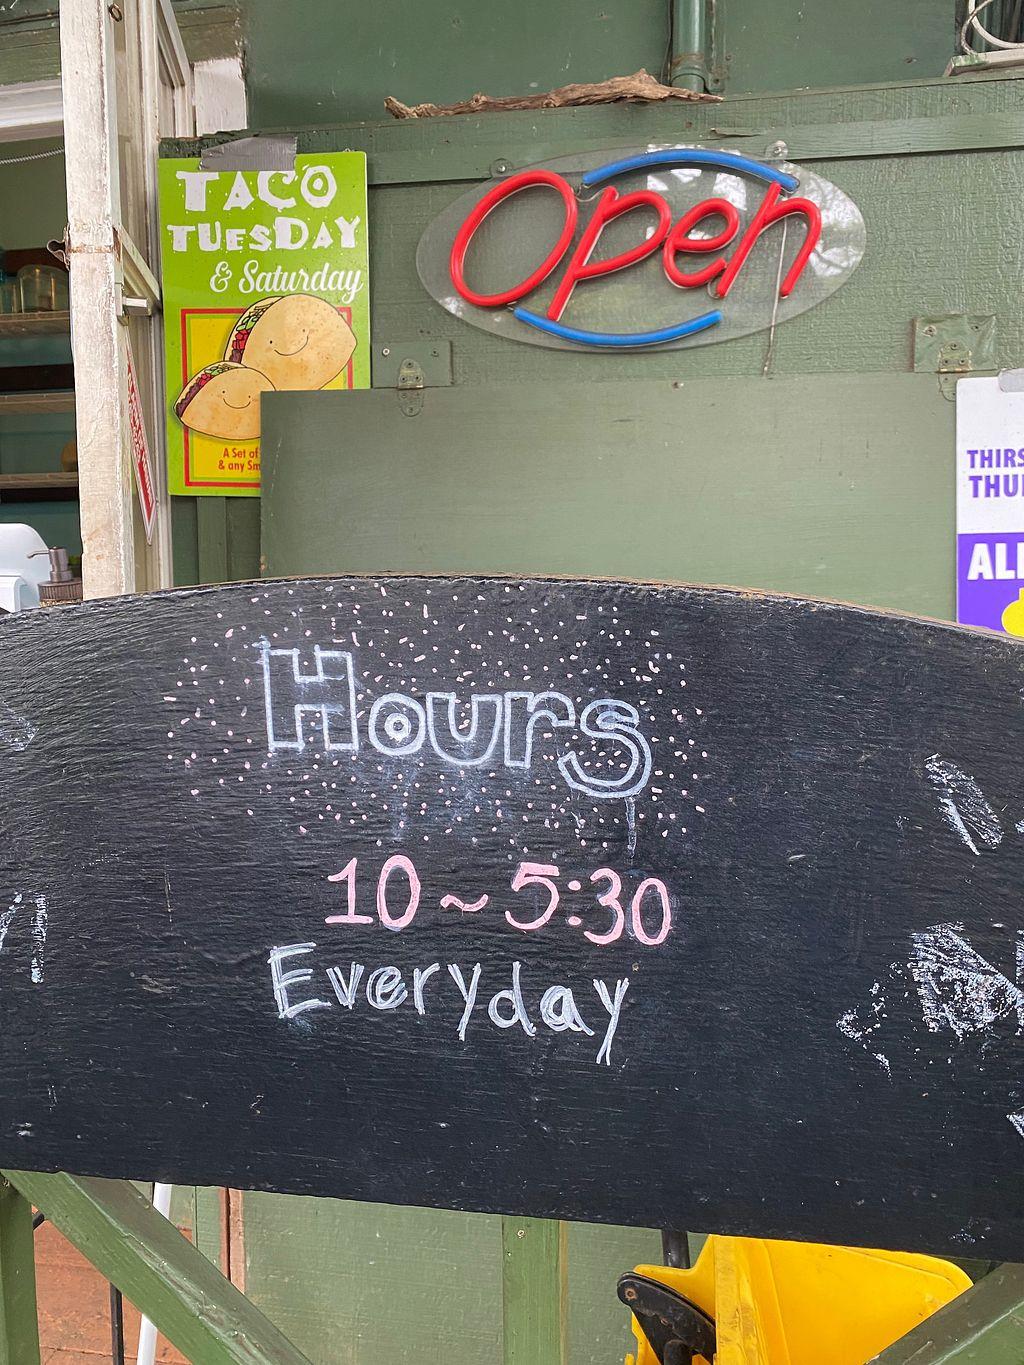 TACO
TUESDAY
& Saturday
A Set of
& any
Open
THU
ALL
Hours
10~5:30
Everyday